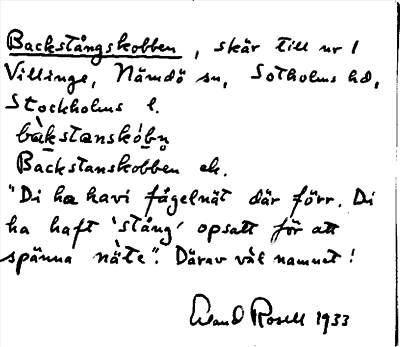 Backstångskobben, skär till nr 1
Villinge, Nämdö sn, Sotholms hd,
Stockholms l.
bàkstanskóbn̥
Backstanskobben ek.
"Di ha havi fågelnät där förr. Di
ha haft 'stång' opsatt för att
spänna näte". Därav väl namnet!
Rosell 1933